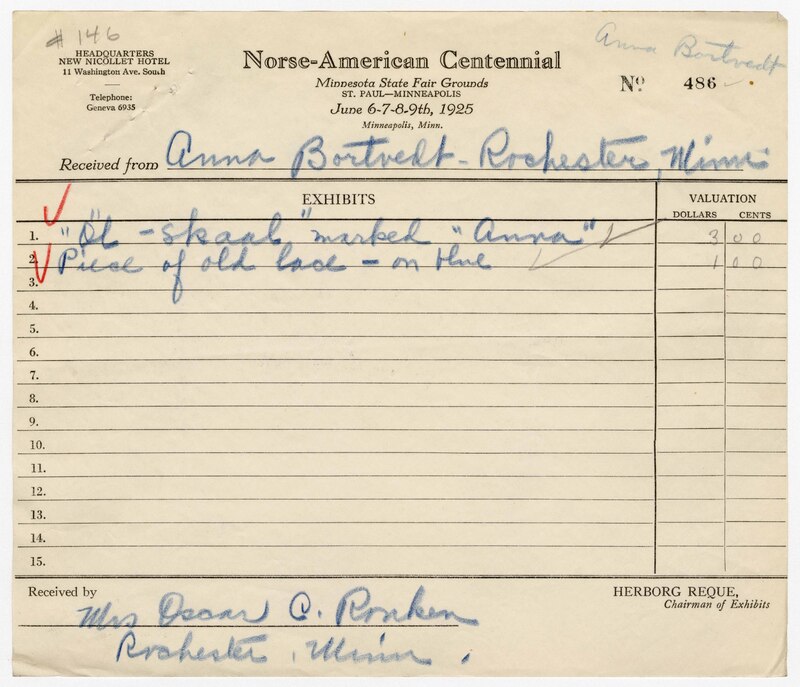 # 146
HEADQUARTERS
NEW NICOLLET HOTEL
11 Washington Ave. South
Telephone:
Geneva 6935
Norse-American Centennial
Minnesota State Fair Grounds
ST. PAUL—MINNEAPOLIS
June 6-7-8-9th, 1925
Minneapolis, Minn.
Anna Bortvedt
Nº 486
Received from Anna Bortvedt - Rochester, Minn.
EXHIBITS
VALUATION
DOLLARS CENTS
1. "Øl - skaal" marked "Anna" 3 00
2. Piece of old lace - on blue 1 00
3.
4.
5.
6.
7.
8.
9.
10.
11.
12.
13.
14.
15.
Received by
Mrs Oscar C. Ronken
Rochester, Minn.
HERBORG REQUE,
Chairman of Exhibits